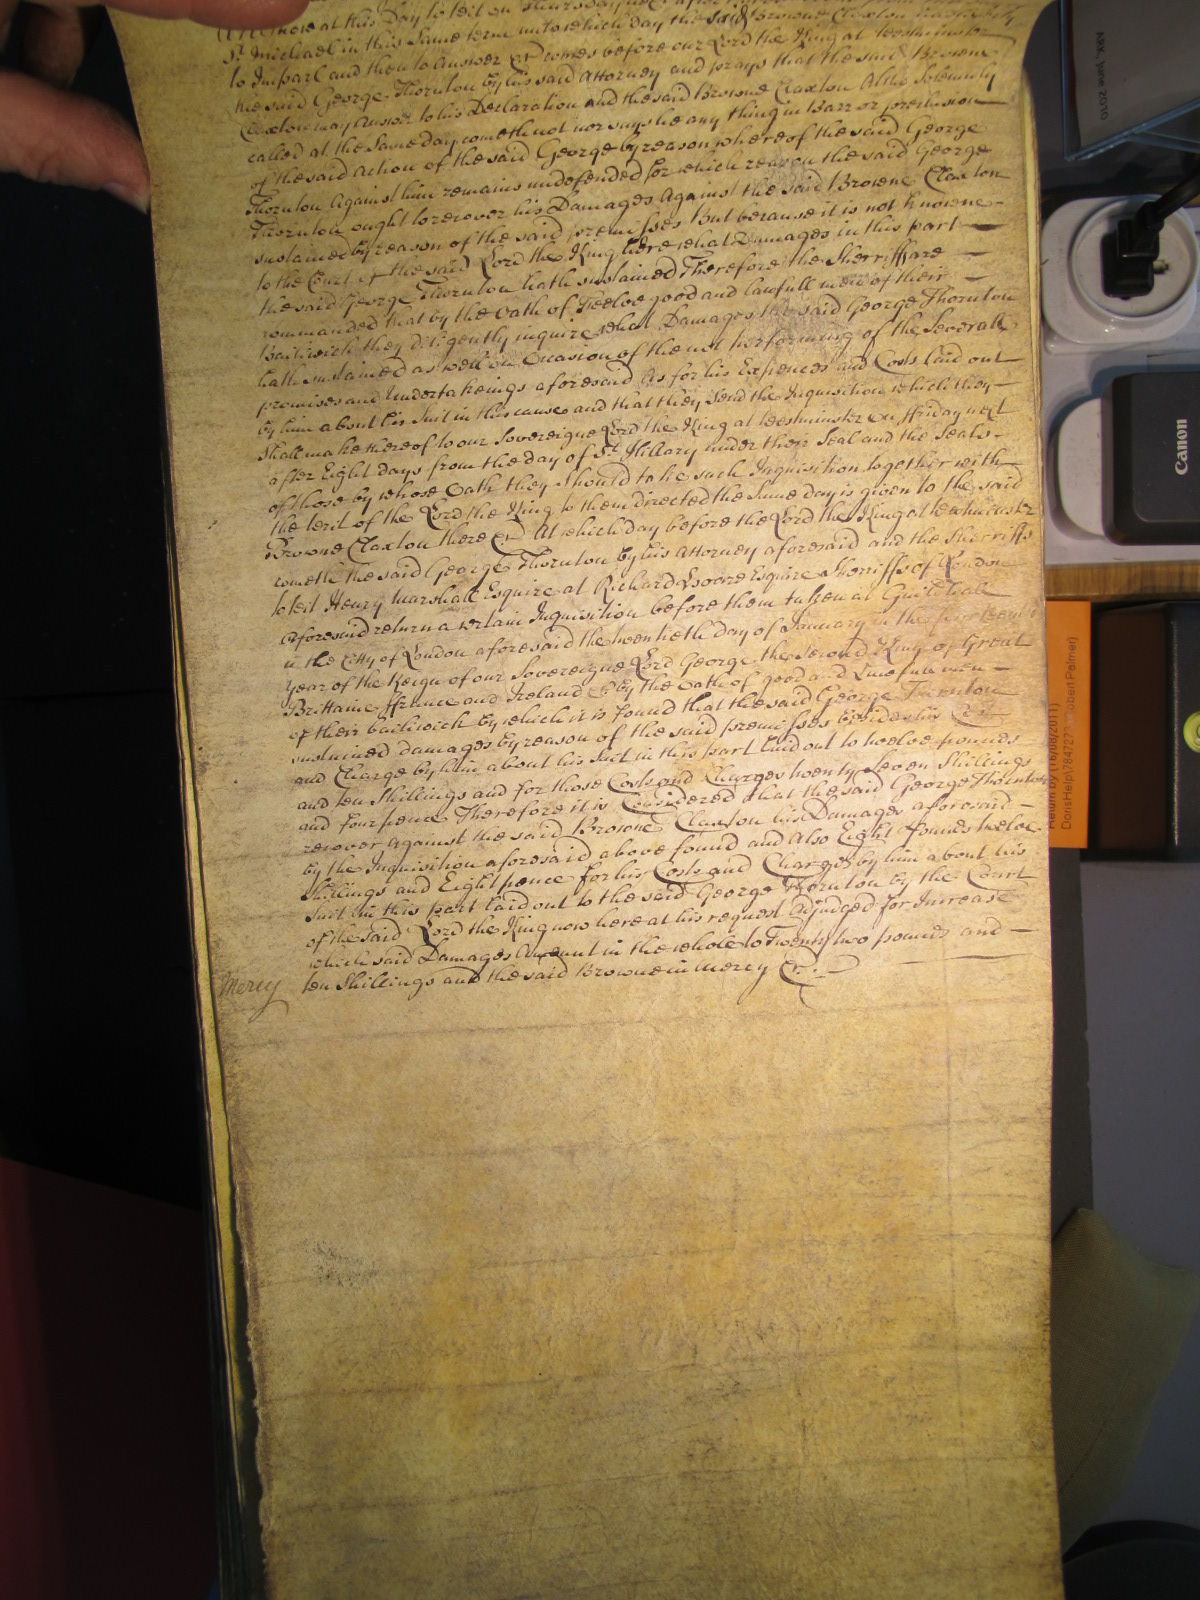 At whose at this Day to wit on Thursday next after
St. Michael in this same term unto which day the said Browne Claxton had leave
to Imparl and then to Answer &c Comes before our Lord the King at Westminster
the said George Thornton by his said Attorney and prays that the said Browne
Claxton may Answer to his Declaration and the said Browne Claxton Altho Solemnly
called at the same day cometh not nor says he any thing in Barr or preclusion
of the said Action of the said George by reason whereof the said George
Thornton Against him remains undefended for which reason the said George
Thornton ought to recover his Damages Against the said Browne Claxton
sustained by reason of the said premisses But because it is not knowne
to the Court of the said Lord the King here what Damages in this part
the said George Thornton hath sustained Therefore the Sherriffs are
commanded that by the Oath of Twelve good and lawfull men of their
Bailiwick they diligently inquire what Damages the said George Thornton
hath sustained as well on Occasion of the not performing of the Severall
promises and Undertakeings aforesaid As for his Expences and Costs laid out
by him about his Suit in this cause and that they send the Inquisition which they
shall make thereof to our Sovereigne Lord the King at Westminster on ffriday next
after Eight days from the day of St. Hillary under their Seal and the Seals
of those by whose Oath they should take such Inquisition together with
the Writ of the Lord the King to them directed the same day is given to the said
Browne Claxton there &c At which day before the Lord the King at Westminster
cometh the said George Thornton by his Attorney aforesaid and the Sherriffs
to wit Henry Marshall Esquire and Richard Hoare Esquire Sherriffs of London
aforesaid return a certain Inquisition before them taken at Guild hall
in the City of London aforesaid the twentieth day of January in the fourteenth
year of the Reign of our Sovereigne Lord George the second King of Great
Brittaine ffrance and Ireland &c by the Oath of good and Lawfull men
of their bailiwick by which it is found that the said George Thornton
sustained damages by reason of the said premisses besides his Costs
and Charges by him about his Suit in this part laid out to twelve pounds
and ten Shillings and for those Costs and Charges twenty seven Shillings
and four pence Therefore it is Considered that the said George Thornton
recover Against the said Browne Claxton his Damages aforesaid
by the Inquisition aforesaid above found and Also Eight pounds twelve
Shillings and Eight pence for his Costs and Charges by him about his
Suit in this part laid out to the said George Thornton by the Court
of the said Lord the King now here at his request Adjudged for Increase
which said Damages Amount in the whole to Twenty two pounds and
Mercy ten Shillings and the said Browne in Mercy &c.
ARK, June 2010
Canon
Return by (16/08/2011)
DorisHelp\784727 Robert Palmer)